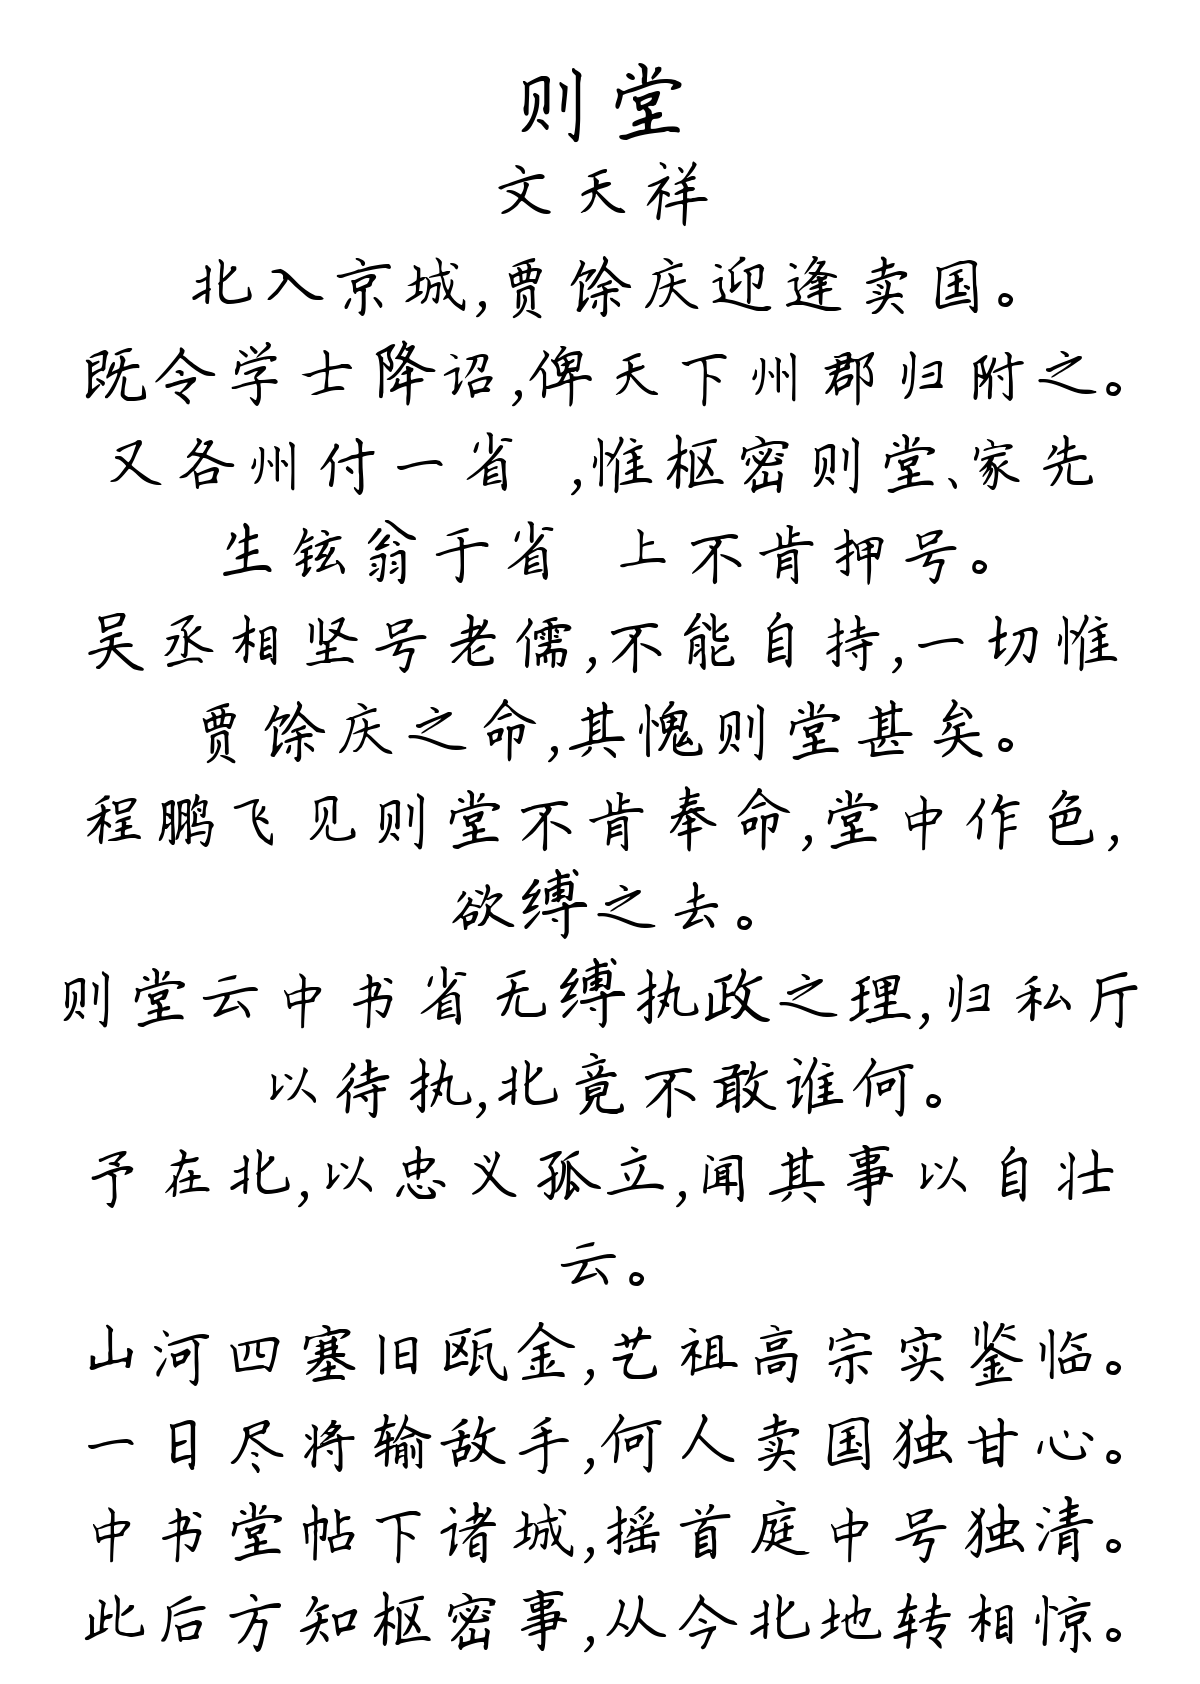 则堂
文天祥
北入京城,贾馀庆迎逢卖国。
既令学士降诏,俾天下州郡归附之。
又各州付一省 ,惟枢密则堂、家先
生铉翁于省 上不肯押号。
吴丞相坚号老儒,不能自持,一切惟
贾馀庆之命,其愧则堂甚矣。
程鹏飞见则堂不肯奉命,堂中作色,
欲缚之去。
则堂云中书省无缚执政之理,归私厅
以待执,北竟不敢谁何。
予在北,以忠义孤立,闻其事以自壮
云。
山河四塞旧瓯金,艺祖高宗实鉴临。
一日尽将输敌手,何人卖国独甘心。
中书堂帖下诸城,摇首庭中号独清。
此后方知枢密事,从今北地转相惊。